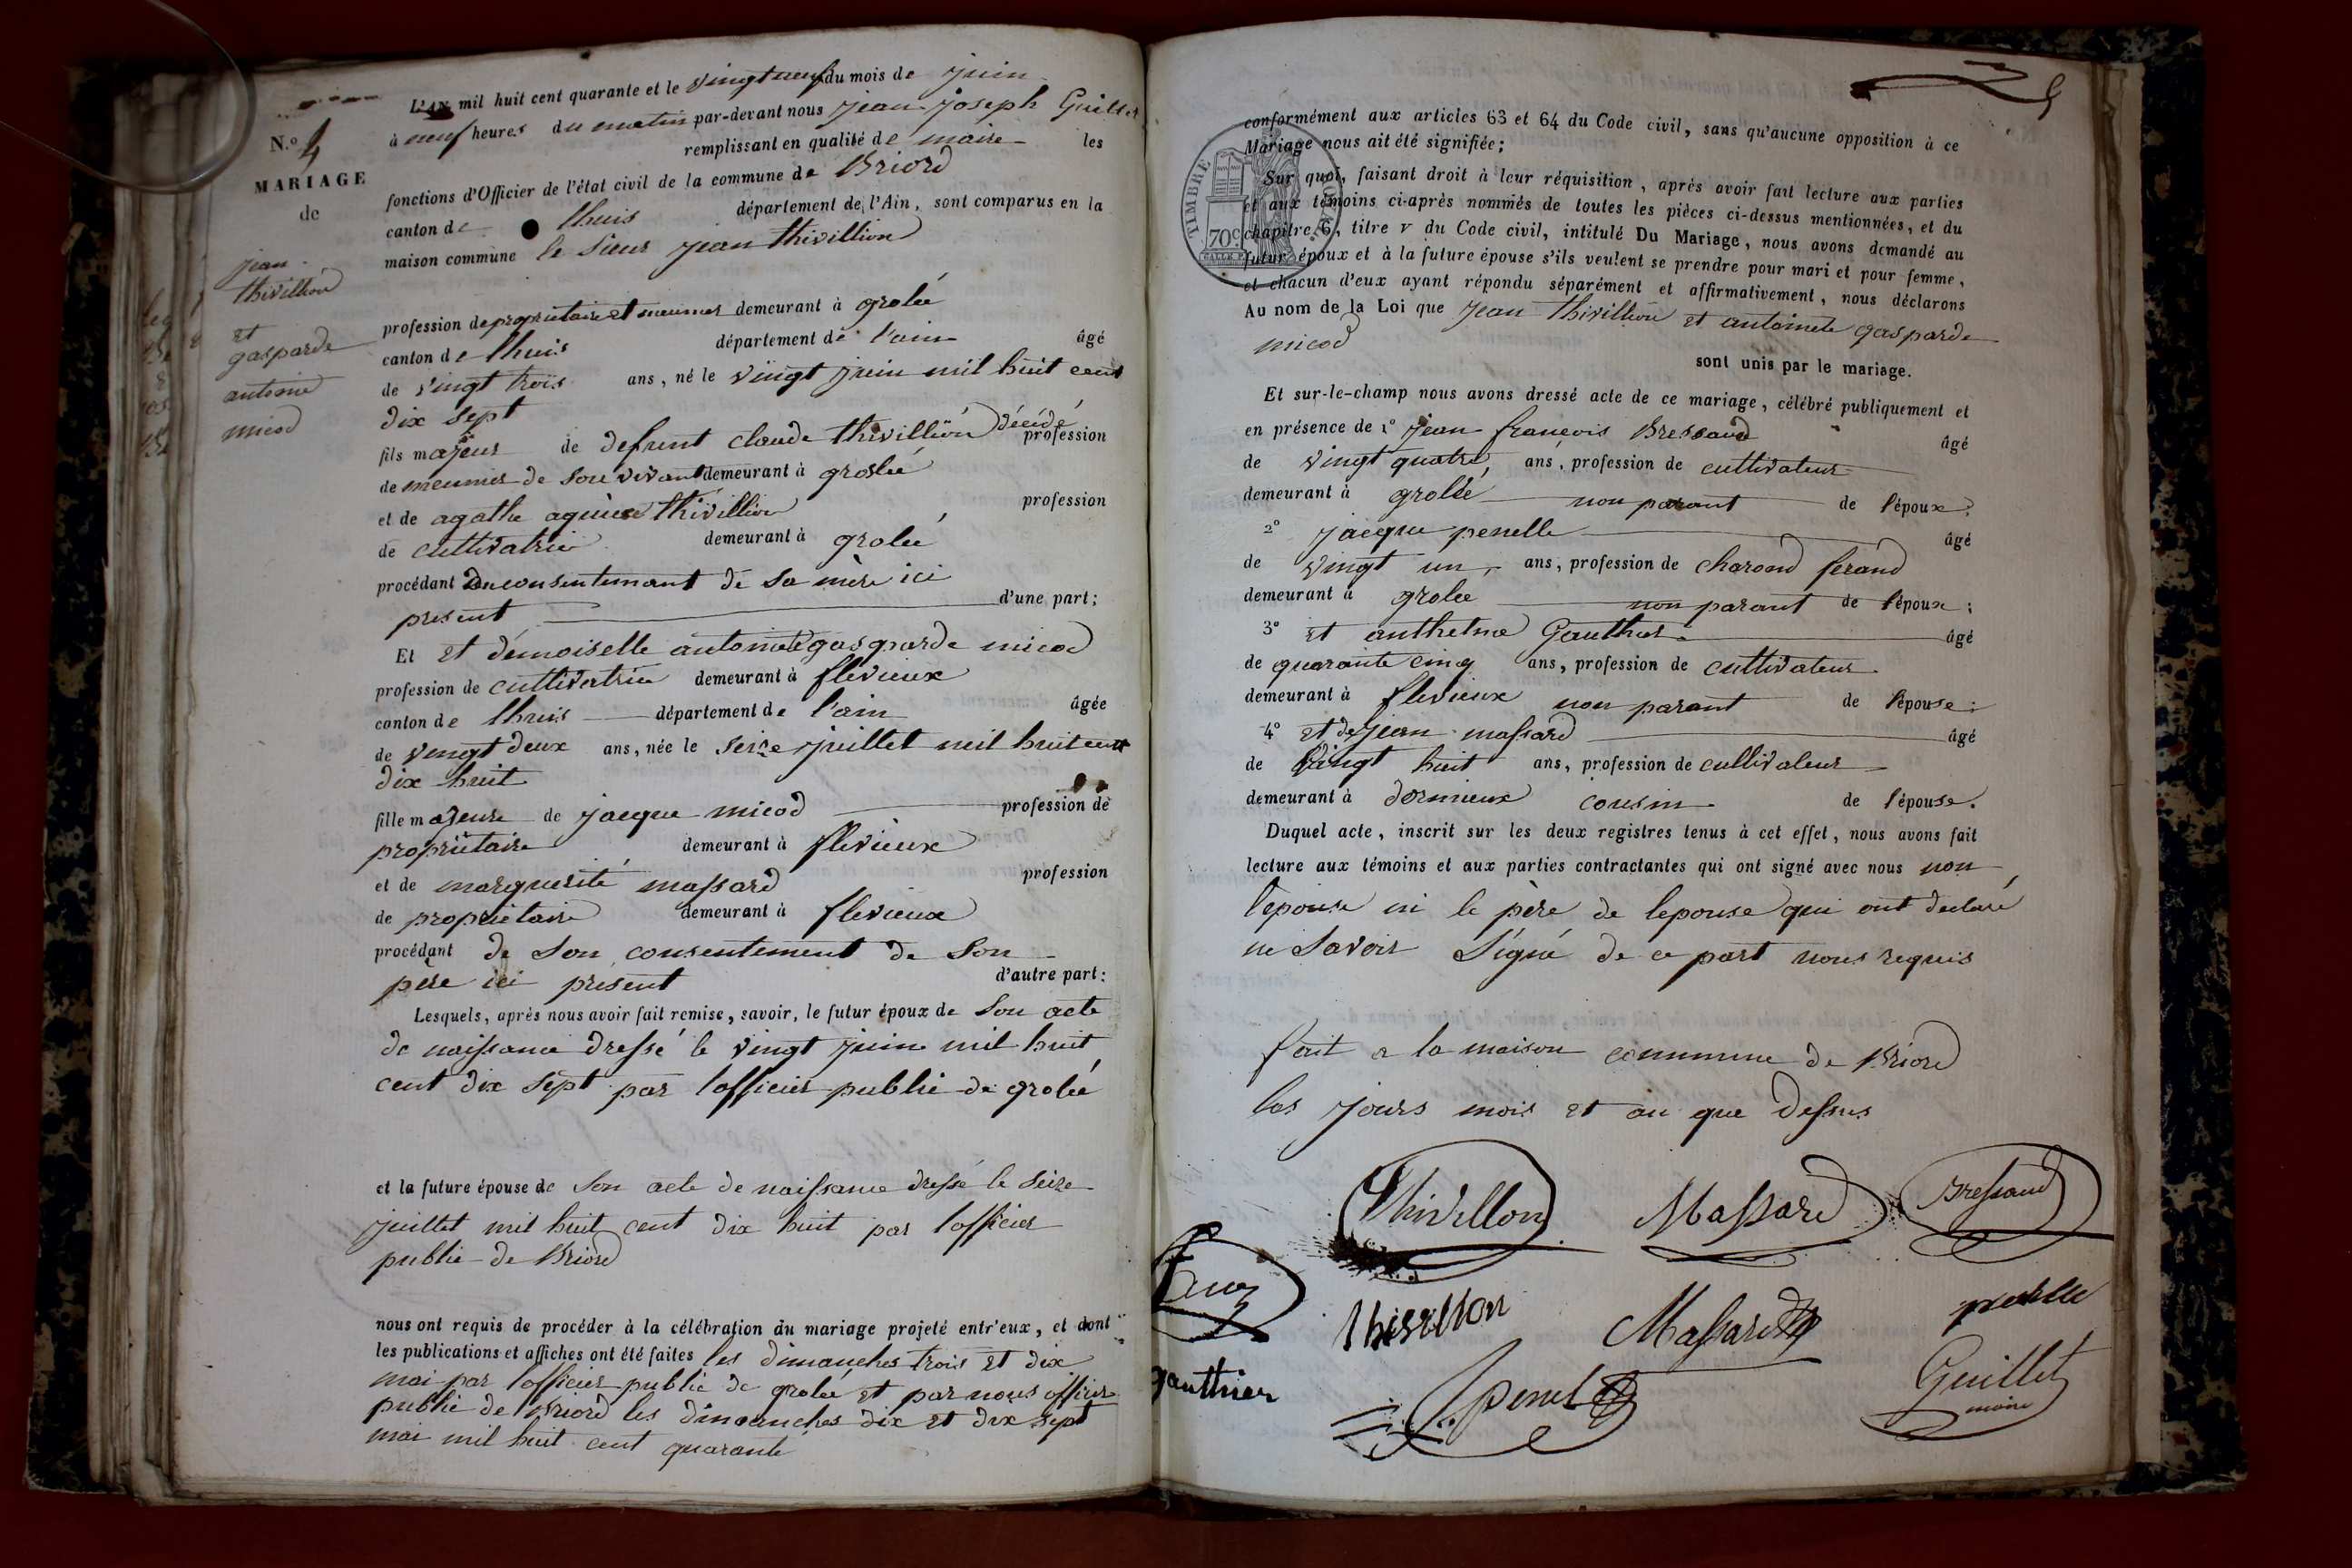 N.º 4
MARIAGE
de
jean
thivillion
et
gasparde
antoinie
micod
L'AN mil huit cent quarante et le vingt neuf du mois de juin
à neuf heures du matin par-devant nous jean joseph Guillet
remplissant en qualité de maire les
fonctions d'Officier de l'état civil de la commune de Briord
canton de lhuis département de l'Ain, sont comparus en la
maison commune le sieur jean thivillion
profession de propriétaire et meunier demeurant à grolée
canton de lhuis département de l'ain âgé
de vingt trois ans, né le vingt juin mil huit cent
dix sept
fils majeur de defunt claude thivillion décédé
profession
de meunier de son vivant demeurant à groslée
et de agathe thivillion profession
de cultivatrice demeurant à grolée
procédant du consentemant de sa mère ici
present d'une part;
Et et démoiselle antoinete gasparde micod
profession de cultivatrice demeurant à flévieux
canton de lhuis département de l'ain âgée
de vingt deux ans, née le seize juillet mil huit cent
dix huit
fille majeure de jacque micod profession de
propriétaire demeurant à flévieux
et de marguerite massard profession
de propriétaire demeurant à flevieux
procédant de son consentement de son
père ici présent d'autre part:
Lesquels, après nous avoir fait remise, savoir, le futur époux de son acte
de naissance dressé le vingt juin mil huit
cent dix sept par lofficier public de grolée
et la future épouse de son acte de naissance dressé le seize
juillet mil huit cent dix huit par lofficier
public de Briord
nous ont requis de procéder à la célébration du mariage projeté entr'eux, et dont
les publications et affiches ont été faites les dimanches trois et dix
mai par lofficier public de grolée et par nous officier
public de Briord les dimanches dix et dix sept
mai mil huit cent quarante
5
TIMBRE ROYAL
70c
conformément aux articles 63 et 64 du Code civil, sans qu'aucune opposition à ce
Mariage nous ait été signifiée;
Sur quoi, faisant droit à leur réquisition, après avoir fait lecture aux parties
et aux témoins ci-après nommés de toutes les pièces ci-dessus mentionnées, et du
chapitre 6, titre v du Code civil, intitulé Du Mariage, nous avons demandé au
futur époux et à la future épouse s'ils veulent se prendre pour mari et pour femme,
et chacun d'eux ayant répondu séparément et affirmativement, nous déclarons
Au nom de la Loi que jean thivillion et antoinete gasparde
micod
sont unis par le mariage.
Et sur-le-champ nous avons dressé acte de ce mariage, célébré publiquement et
en présence de 1º jean francois Bressaud âgé
de vingt quatre, ans, profession de cultivateur
demeurant à grolée non parant de l'époux;
2º jacque penelle âgé
de vingt un, ans, profession de charond ferand
demeurant à grolee non parant de l'époux;
3º et anthelme Gauthier âgé
de quarante cinq ans, profession de cultivateur
demeurant à flevieux non parant de l'épouse;
4º et de jean massard âgé
de vingt huit ans, profession de cultivateur
demeurant à dornieux cousin de l'épouse.
Duquel acte, inscrit sur les deux registres tenus à cet effet, nous avons fait
lecture aux témoins et aux parties contractantes qui ont signé avec nous non
l'épouse ni le père de lepouse qui ont déclaré
ne savoir signé de ce part nous requis
fait a la maison commune de Briord
les jours mois et an que dessus
Thivillon Massard Bressaud
thivillon Massard penelle
gauthier penel Guillet
maire